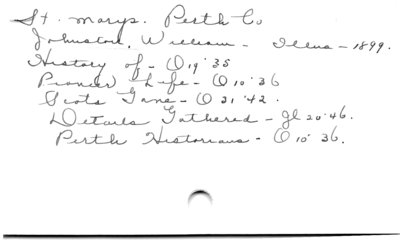 St. Marys. Perth Co
Johnston, William - Illus - 1899.
History of - O 19 '35
Pioneer Life - O 10 '36
Scots Gane - O 31 '42.
Details Gathered - Jl 20 '46.
Perth Historians - O 10 '36.